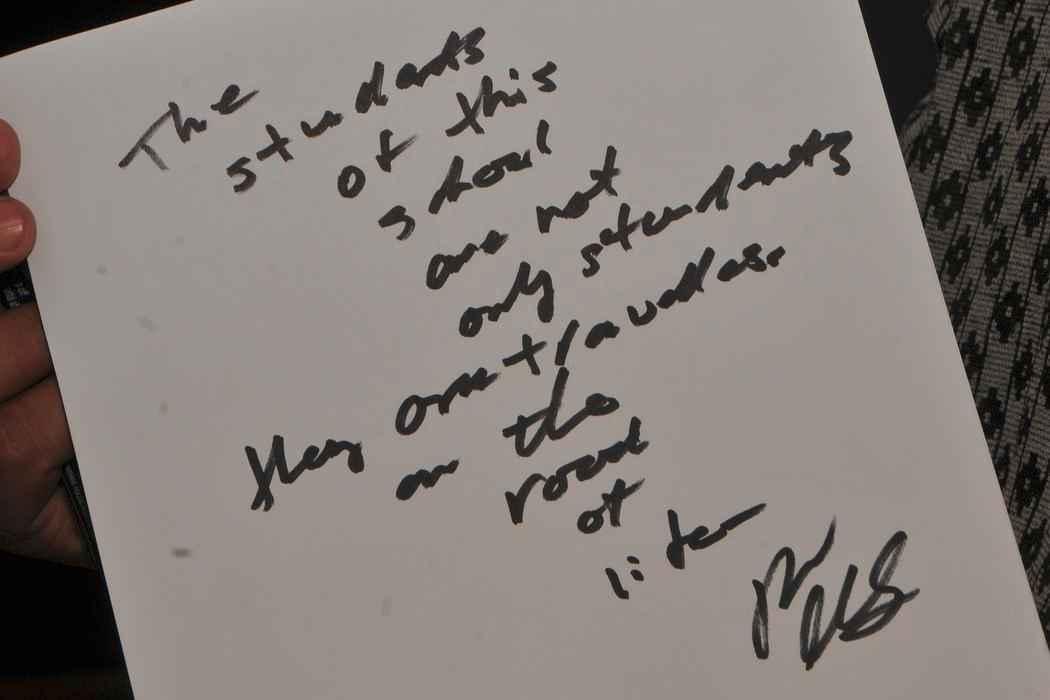 The
students
of this
school
are not
only students
They are travellers
on the
road
of
life